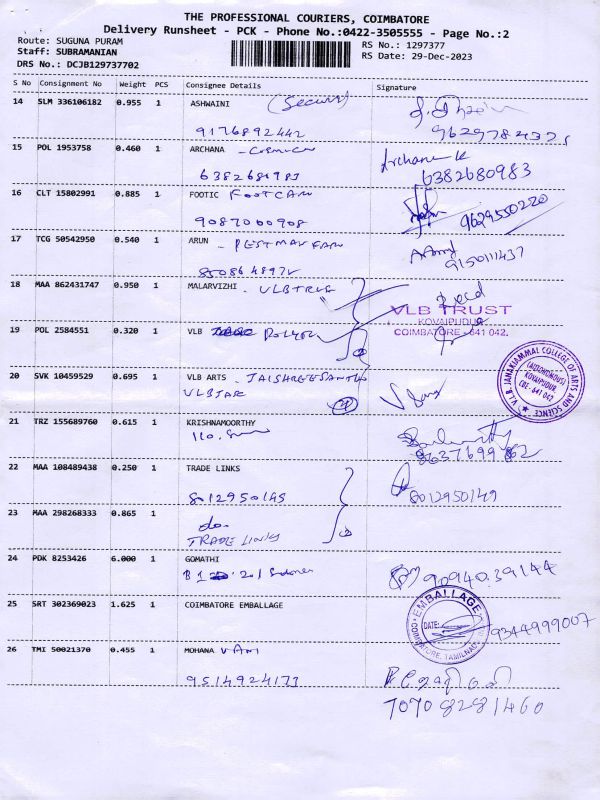 THE PROFESSIONAL COURIERS, COIMBATORE
Delivery Runsheet - PCK - Phone No.:0422-3505555 - Page No.:2
Route: SUGUNA PURAM
RS No.: 1297377
Staff: SUBRAMANIAN
RS Date: 29-Dec-2023
DRS No.: DCJB129737702
S No Consignment No Weight PCS Consignee Details Signature
14 SLM 336106182 0.955 1 ASHWAINI
9176892442
9629784371
15 POL 1953758 0.460 1 ARCHANA
Archana k
6382680983
16 CLT 15802991 0.885 1 FOOTIC FOOTCAN
9087000908
9629550220
17 TCG 50542950 0.540 1 ARUN
9150111437
18 MAA 862431747 0.950 1 MALARVIZHI - VLBTRUS
VLB TRUST
KOVAIPUDUR
COIMBATORE - 641 042.
19 POL 2584551 0.320 1 VLB
V.L.B. JANAKIAMMAL COLLEGE OF ARTS AND SCIENCE
(AUTONOMOUS)
KOVAIPUDUR
CBE - 641 042
20 SVK 10459529 0.695 1 VLB ARTS - JAISHREESANTH
VLBJAR
21 TRZ 155689760 0.615 1 KRISHNAMOORTHY
8637699862
22 MAA 108489438 0.250 1 TRADE LINKS
8012950149
8012950149
23 MAA 298268333 0.865 1
do.
TRADE LINKS
24 PDK 8253426 6.000 1 GOMATHI
90940.39144
25 SRT 302369023 1.625 1 COIMBATORE EMBALLAGE
EMBALLAGE
DATE:
COIMBATORE, TAMILNADU
9344999007
26 TMI 50021370 0.455 1 MOHANA VANI
9514924173
70708281460